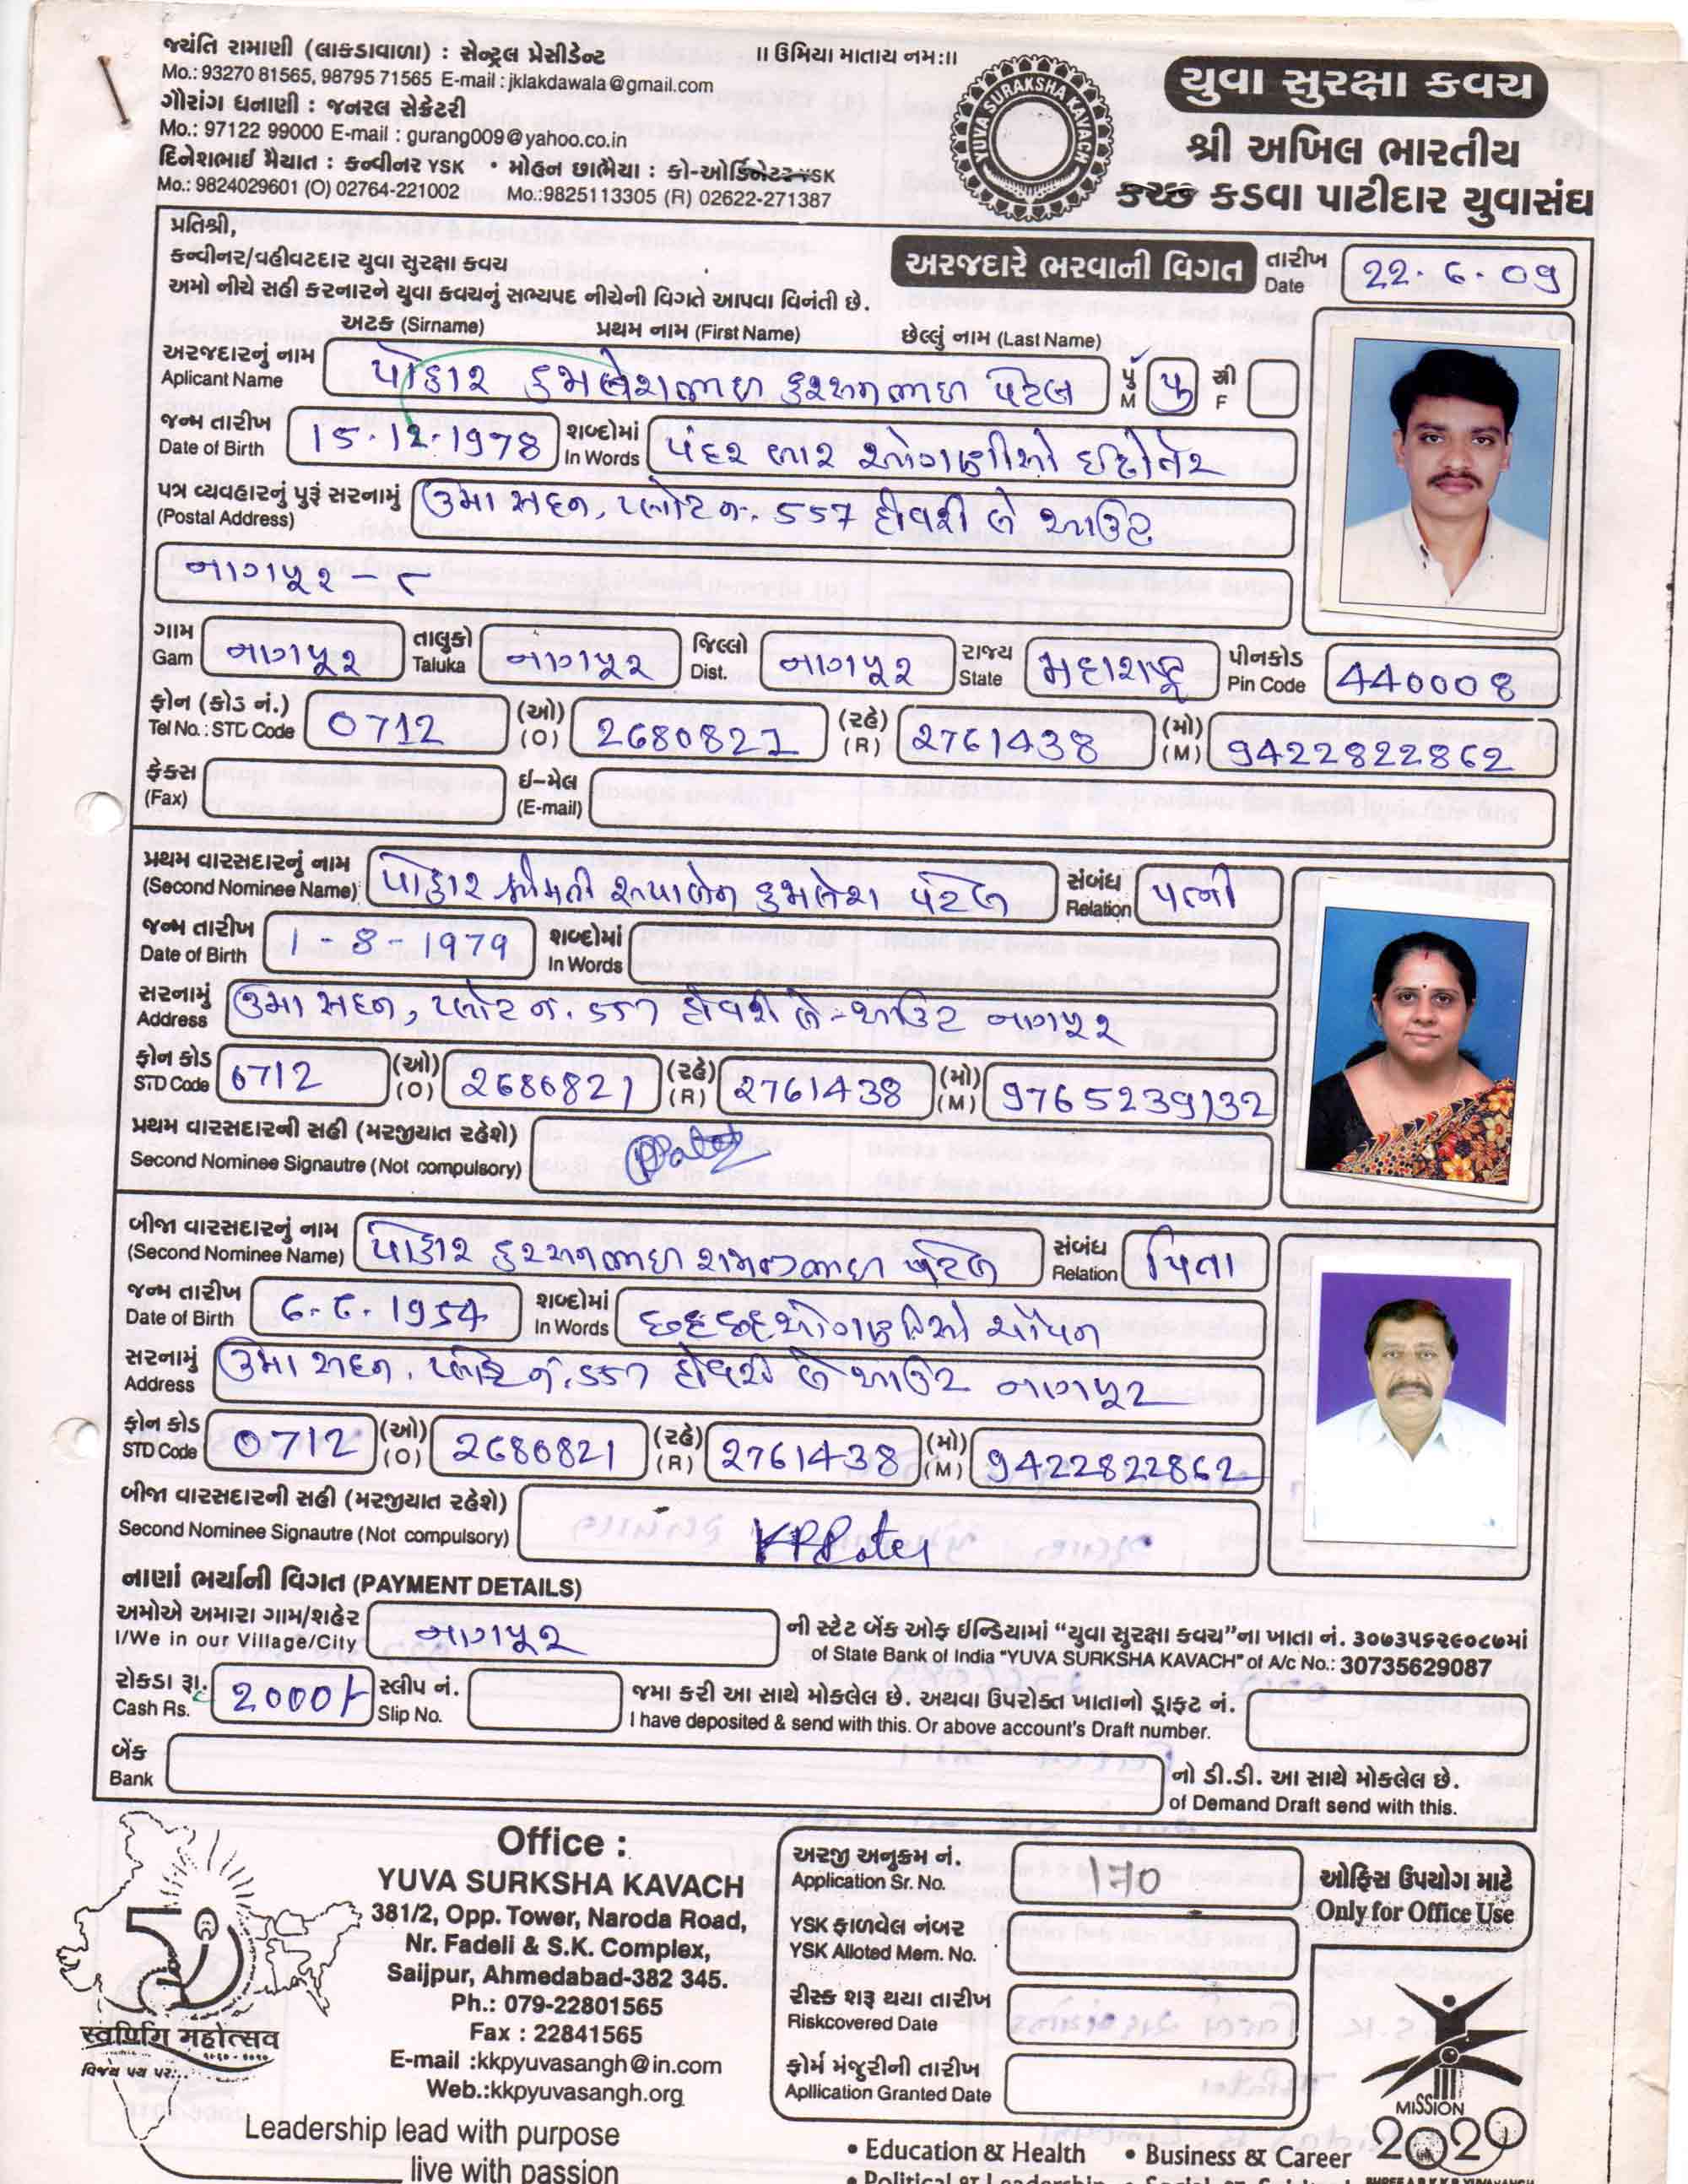 જયંતિ રામાણી (લાકડાવાળા) : સેન્ટ્રલ પ્રેસીડેન્ટ
Mo.: 93270 81565, 98795 71565 E-mail : jklakdawala@gmail.com
ગૌરાંગ ધનાણી : જનરલ સેક્રેટરી
Mo.: 97122 99000 E-mail : gurang009@yahoo.co.in
દિનેશભાઈ મૈયાત : કન્વીનર YSK • મોહન છાભૈયા : કો-ઓર્ડિનેટર YSK
Mo.: 9824029601 (O) 02764-221002 Mo.:9825113305 (R) 02622-271387
॥ ઉમિયા માતાય નમઃ॥
YUVA SURAKSHA KAVACH
યુવા સુરક્ષા કવચ
શ્રી અખિલ ભારતીય
કચ્છ કડવા પાટીદાર યુવાસંઘ
પ્રતિશ્રી,
કન્વીનર/વહીવટદાર યુવા સુરક્ષા કવચ
અમો નીચે સહી કરનારને યુવા કવચનું સભ્યપદ નીચેની વિગતે આપવા વિનંતી છે.
અરજદારે ભરવાની વિગત તારીખ Date 22-6-09
અટક (Sirname) પ્રથમ નામ (First Name) છેલ્લું નામ (Last Name)
અરજદારનું નામ Aplicant Name પોકાર કમલેશભાઇ કરશનભાઇ પટેલ પું M પુ સ્ત્રી F
જન્મ તારીખ Date of Birth 15-12-1978 શબ્દોમાં In Words પંદર બાર ઓગણીસો ઈઠોતેર
પત્ર વ્યવહારનું પુરૂં સરનામું (Postal Address) ઉમા સદન, પ્લોટ નં. 557 હીવરી લે આઉટ
નાગપૂર - ૮
ગામ Gam નાગપૂર તાલુકો Taluka નાગપૂર જિલ્લો Dist. નાગપૂર રાજ્ય State મહારાષ્ટ્ર પીનકોડ Pin Code 440008
ફોન (કોડ નં.) Tel No. : STD Code 0712 (ઓ) (O) 2680821 (રહે) (R) 2761438 (મો) (M) 9422822862
ફેક્સ (Fax) ઈ-મેલ (E-mail)
પ્રથમ વારસદારનું નામ (Second Nominee Name) પોકાર શ્રીમતી રૂપાબેન કમલેશ પટેલ સંબંધ Relation પત્ની
જન્મ તારીખ Date of Birth 1-8-1979 શબ્દોમાં In Words
સરનામું Address ઉમા સદન, પ્લોટ નં. 557 હીવરી લે-આઉટ નાગપૂર
ફોન કોડ STD Code 0712 (ઓ) (O) 2680821 (રહે) (R) 2761438 (મો) (M) 9765239132
પ્રથમ વારસદારની સહી (મરજીયાત રહેશે)
Second Nominee Signautre (Not compulsory)
બીજા વારસદારનું નામ (Second Nominee Name) પોકાર કરશનભાઇ રામજીભાઇ પટેલ સંબંધ Relation પિતા
જન્મ તારીખ Date of Birth 6-6-1954 શબ્દોમાં In Words છહ છહ ઓગણિસો ચોપન
સરનામું Address ઉમા સદન, પ્લોટ નં. 557 હીવરી લે આઉટ નાગપૂર
ફોન કોડ STD Code 0712 (ઓ) (O) 2680821 (રહે) (R) 2761438 (મો) (M) 9422822862
બીજા વારસદારની સહી (મરજીયાત રહેશે)
Second Nominee Signautre (Not compulsory)
નાણાં ભર્યાની વિગત (PAYMENT DETAILS)
અમોએ અમારા ગામ/શહેર નાગપૂર ની સ્ટેટ બેંક ઓફ ઈન્ડિયામાં “યુવા સુરક્ષા કવચ”ના ખાતા નં. ૩૦૭૩૫૬૨૯૦૮૭માં
I/We in our Village/City of State Bank of India "YUVA SURKSHA KAVACH" of A/c No.: 30735629087
રોકડા રૂા. Cash Rs. 2000/- સ્લીપ નં. Slip No. જમા કરી આ સાથે મોકલેલ છે. અથવા ઉપરોક્ત ખાતાનો ડ્રાફ્ટ નં.
I have deposited & send with this. Or above account's Draft number.
બેંક Bank નો ડી.ડી. આ સાથે મોકલેલ છે.
of Demand Draft send with this.
50
स्वर्णिम महोत्सव
Office :
YUVA SURKSHA KAVACH
381/2, Opp. Tower, Naroda Road,
Nr. Fadeli & S.K. Complex,
Saijpur, Ahmedabad-382 345.
Ph.: 079-22801565
Fax : 22841565
E-mail :kkpyuvasangh@in.com
Web.:kkpyuvasangh.org
Leadership lead with purpose
live with passion
અરજી અનુક્રમ નં. Application Sr. No. 170
ઓફિસ ઉપયોગ માટે
Only for Office Use
YSK ફાળવેલ નંબર
YSK Alloted Mem. No.
રીસ્ક શરૂ થયા તારીખ
Riskcovered Date
ફોર્મ મંજુરીની તારીખ
Apllication Granted Date
MISSION
2020
• Education & Health • Business & Career